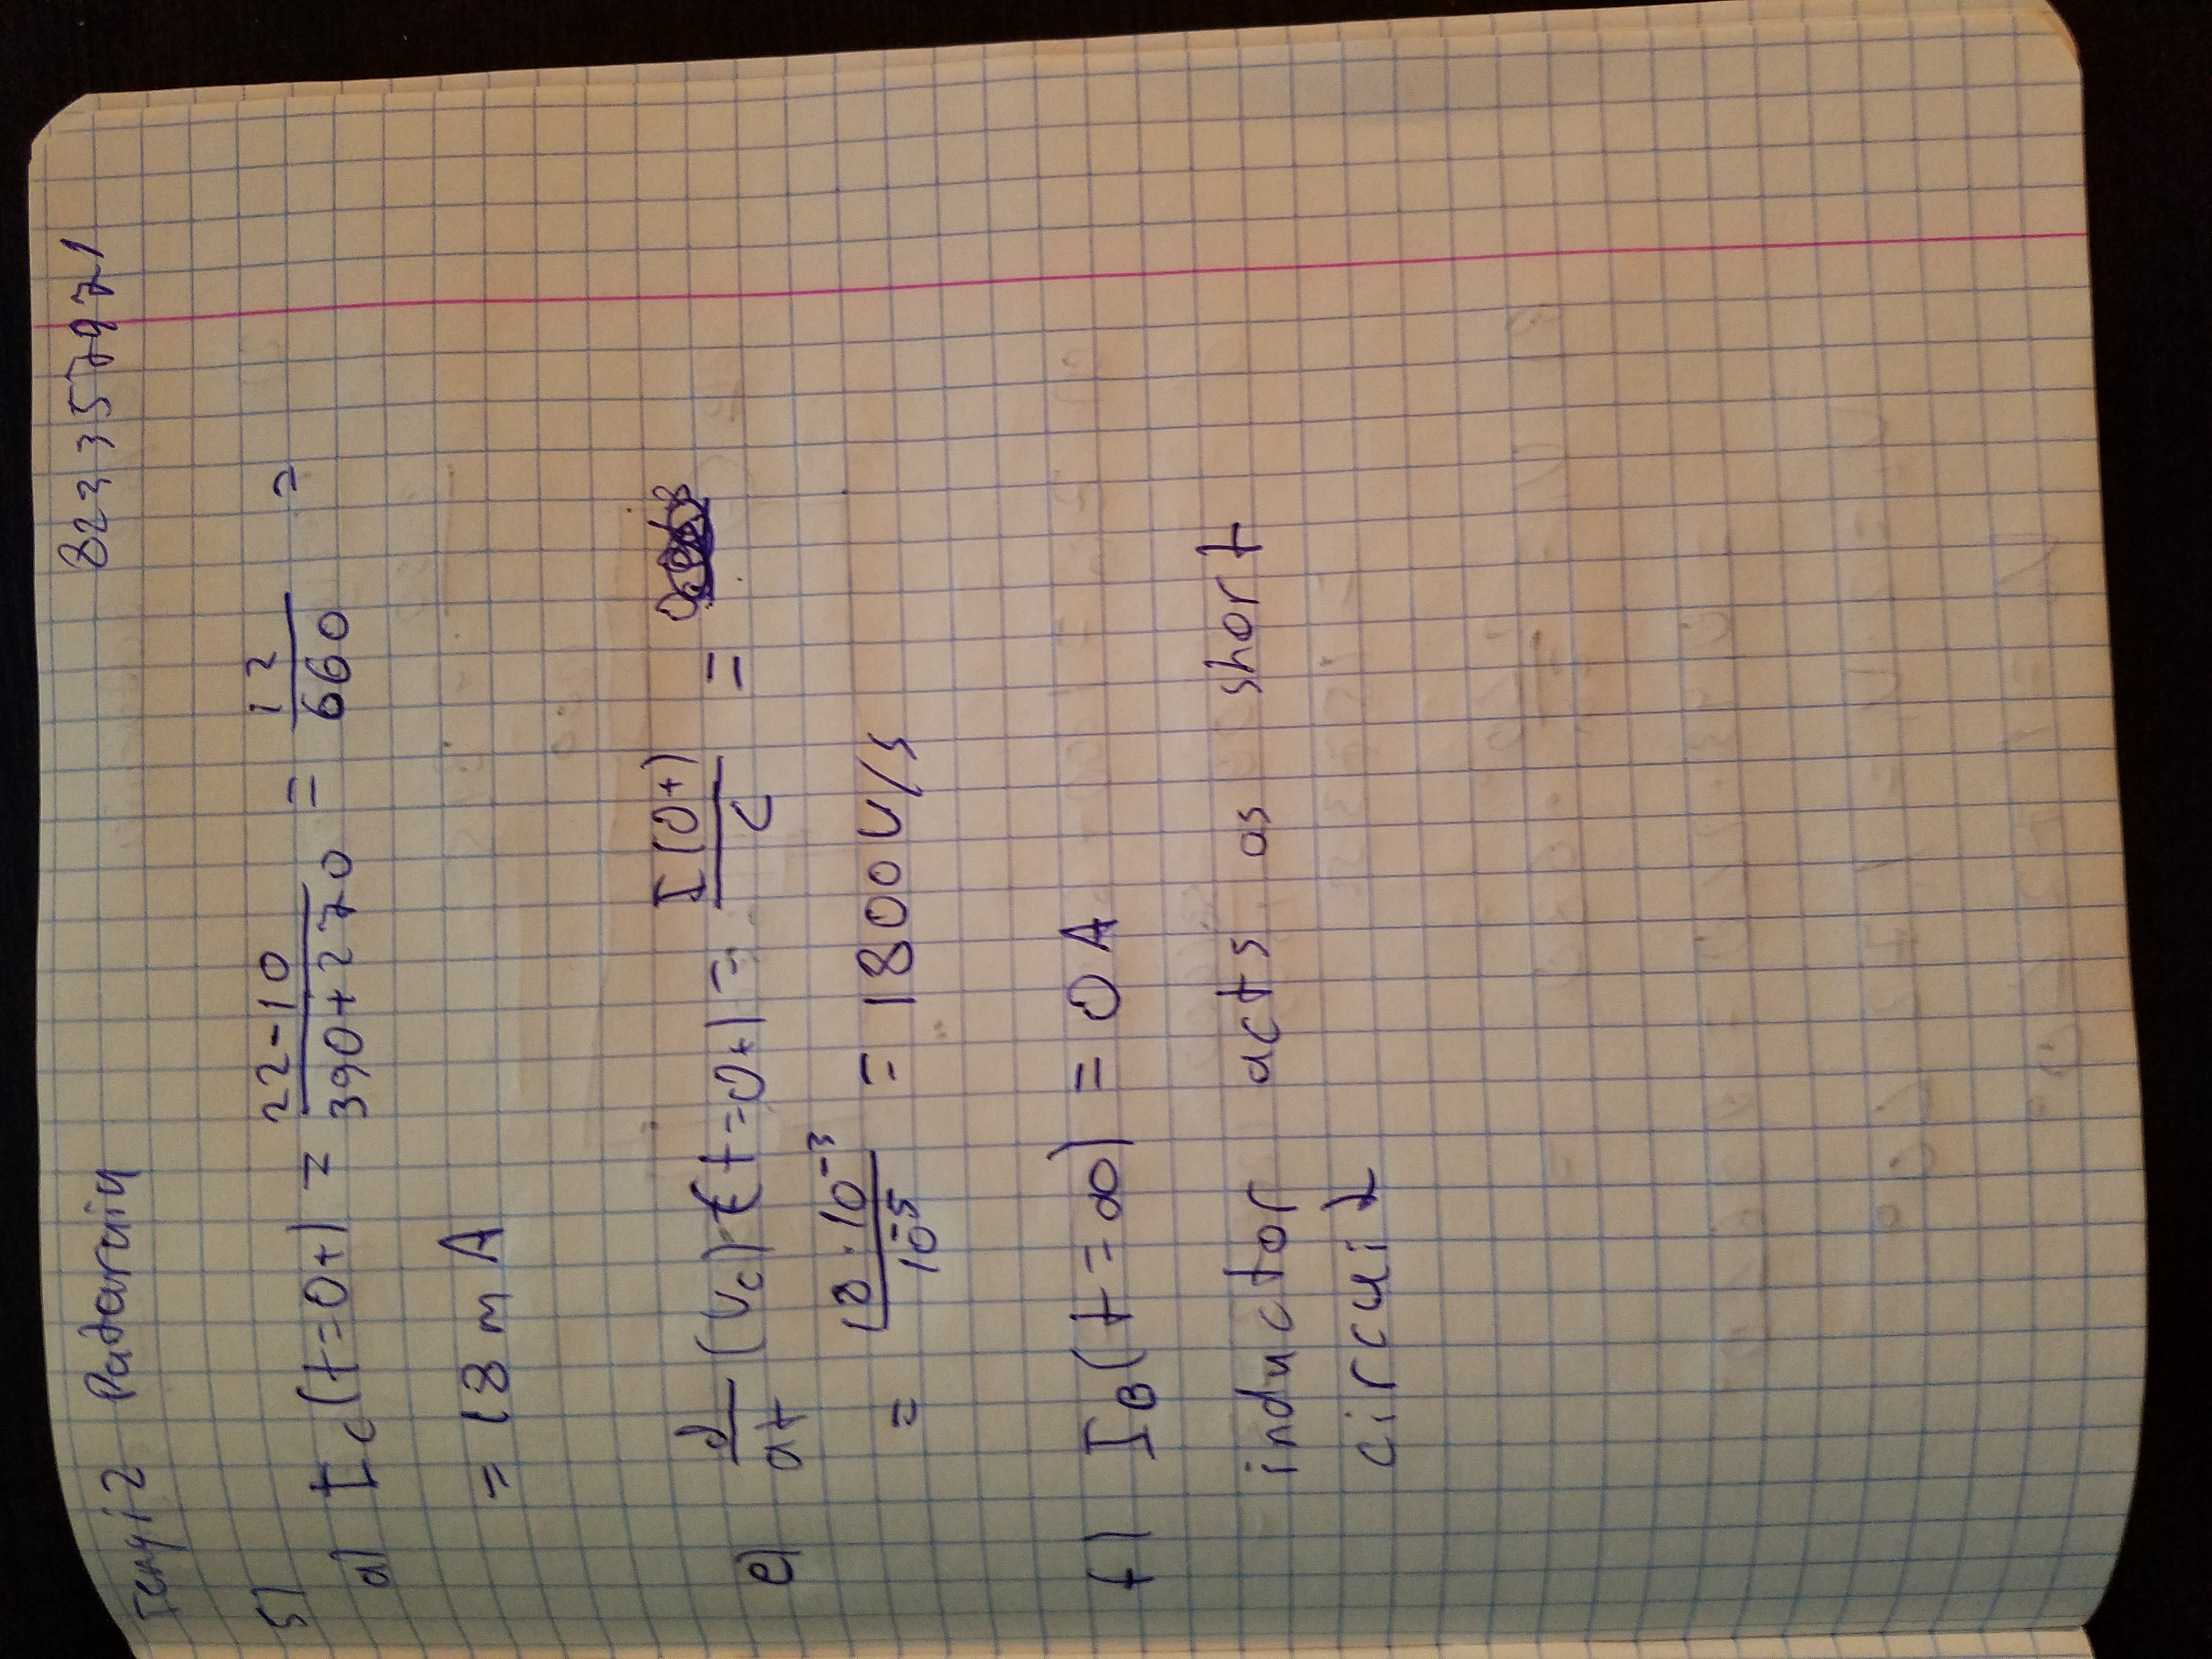 Tengiz Padarvin 822335797 1
5)
a) Ic(t=0+) = 22-10 / 390+270 = 12 / 660 =
= 18 mA
e) d/dt (Vc)(t=0+) = I(0+) / C =
= 18·10^-3 / 10^-5 = 1800 V/s
f) IB(t=∞) = 0 A
inductor acts as short
circuit